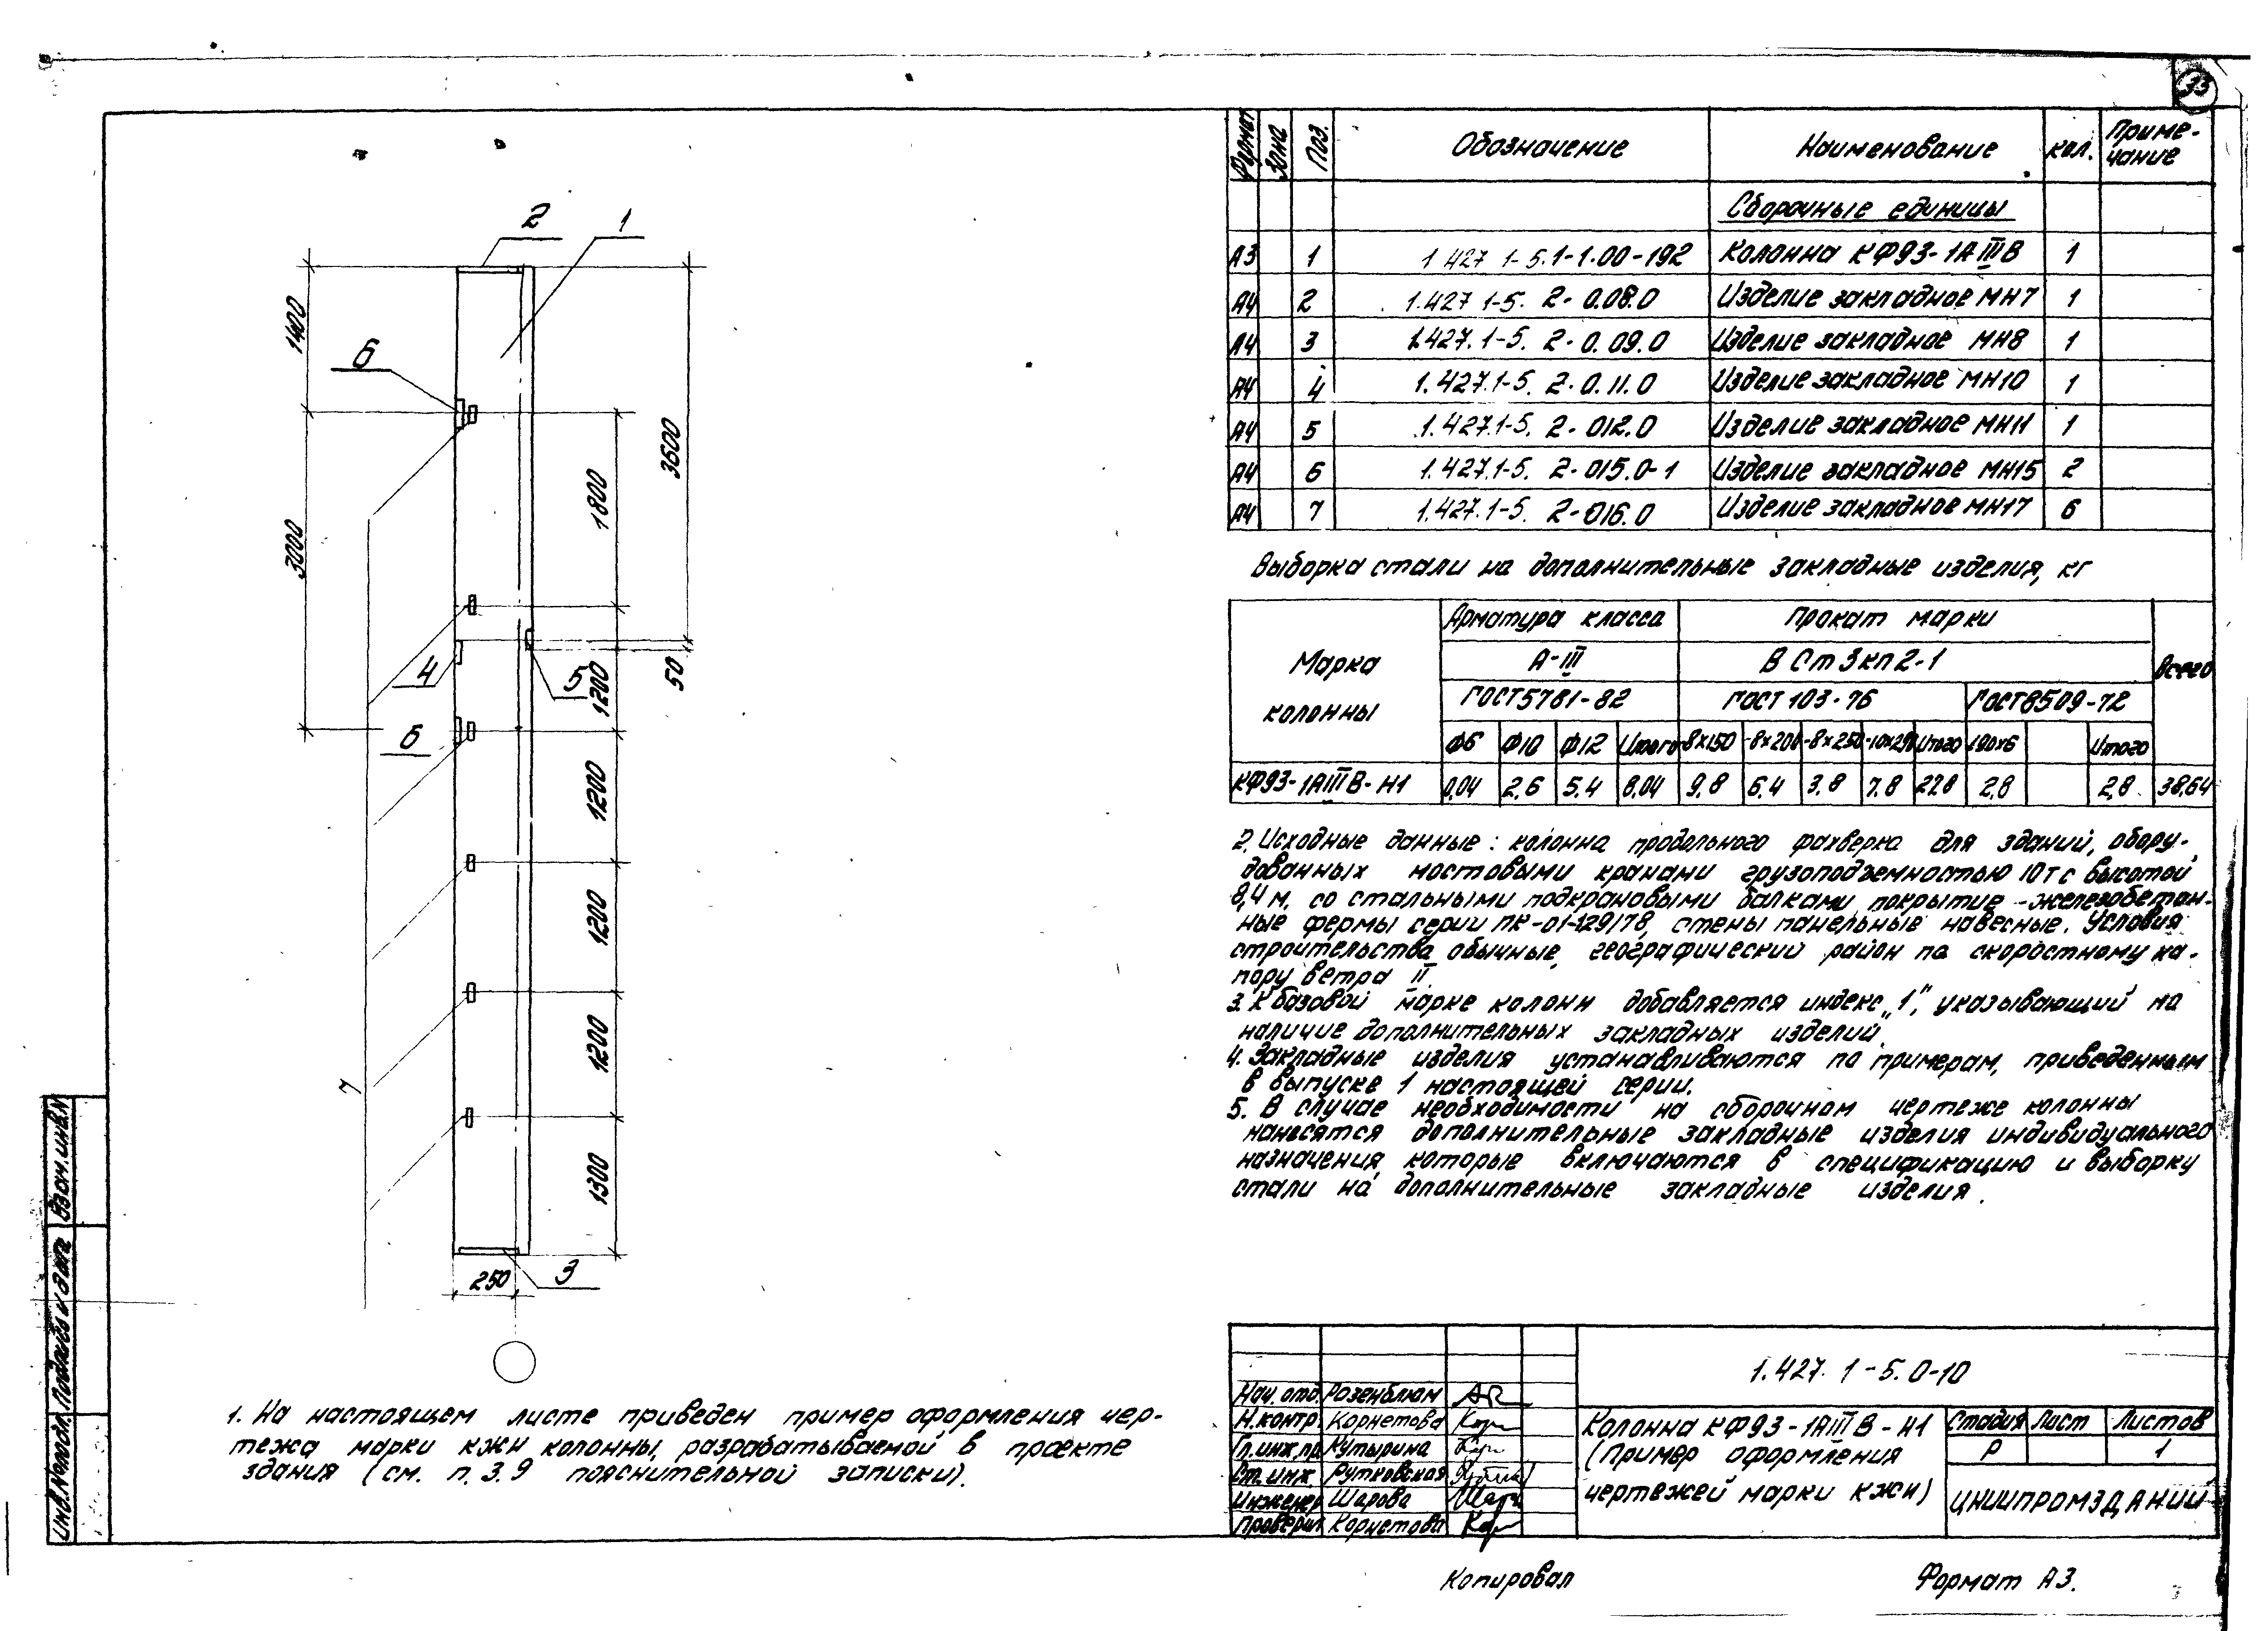 33
Формат Зона Поз. Обозначение Наименование кол. Приме-
чание
Сборочные единицы
А3 1 1.427.1-5.1-1.00-192 Колонна КФ93-1АIIIВ 1
А4 2 1.427.1-5. 2-0.08.0 Изделие закладное МН7 1
А4 3 1.427.1-5. 2-0.09.0 Изделие закладное МН8 1
А4 4 1.427.1-5. 2-0.11.0 Изделие закладное МН10 1
А4 5 1.427.1-5. 2-012.0 Изделие закладное МН11 1
А4 6 1.427.1-5. 2-015.0-1 Изделие закладное МН15 2
А4 7 1.427.1-5. 2-016.0 Изделие закладное МН17 6
Выборка стали на дополнительные закладные изделия, кг
Марка
колонны
Арматура класса Прокат марки Всего
А-III ВСт3кп2-1
ГОСТ5781-82 ГОСТ103-76 ГОСТ8509-72
Ф6 Ф10 Ф12 Итого -8×150 -8×200 -8×250 -10×250 Итого L90×6 Итого
КФ93-1АIIIВ-Н1 0,04 2,6 5.4 8,04 9.8 6.4 3.8 7.8 27.8 2,8 2,8 38,64
2. Исходные данные: колонна продольного фахверка для зданий, обору-
дованных мостовыми кранами грузоподъемностью 10тс высотой
8,4 м, со стальными подкрановыми балками покрытие -железобетон-
ные фермы серии ПК-01-129/78, стены панельные навесные. Условия
строительства обычные, географический район по скоростному на-
пору ветра II.
3. К базовой марке колонн добавляется индекс „1", указывающий на
наличие дополнительных закладных изделий.
4. Закладные изделия устанавливаются по примерам, приведенным
в выпуске 1 настоящей серии.
5. В случае необходимости на сборочном чертеже колонны
наносятся дополнительные закладные изделия индивидуального
назначения, которые включаются в спецификацию и выборку
стали на дополнительные закладные изделия.
2 1
1400
6
3000
1800
3600
4
5
50
1200
6
1200
1200
1200
7
1300
250 3
1. На настоящем листе приведен пример оформления чер-
тежа марки КЖИ колонны, разрабатываемой в проекте
здания (см. п.3.9 пояснительной записки).
Взам.инв.N
Подпись и дата
Инв.Nподл.
1.427.1-5.0-10
Нач. отд. Розенблюм
Н.контр. Корнетова
Гл.инж.пр. Кутырина
Ст.инж. Рутковская
Инженер Шарова
Проверил Корнетова
Колонна КФ93-1АIIIВ-Н1
(Пример оформления
чертежей марки КЖИ)
Стадия Лист Листов
Р 1
ЦНИИПРОМЗДАНИЙ
Копировал Формат А3.